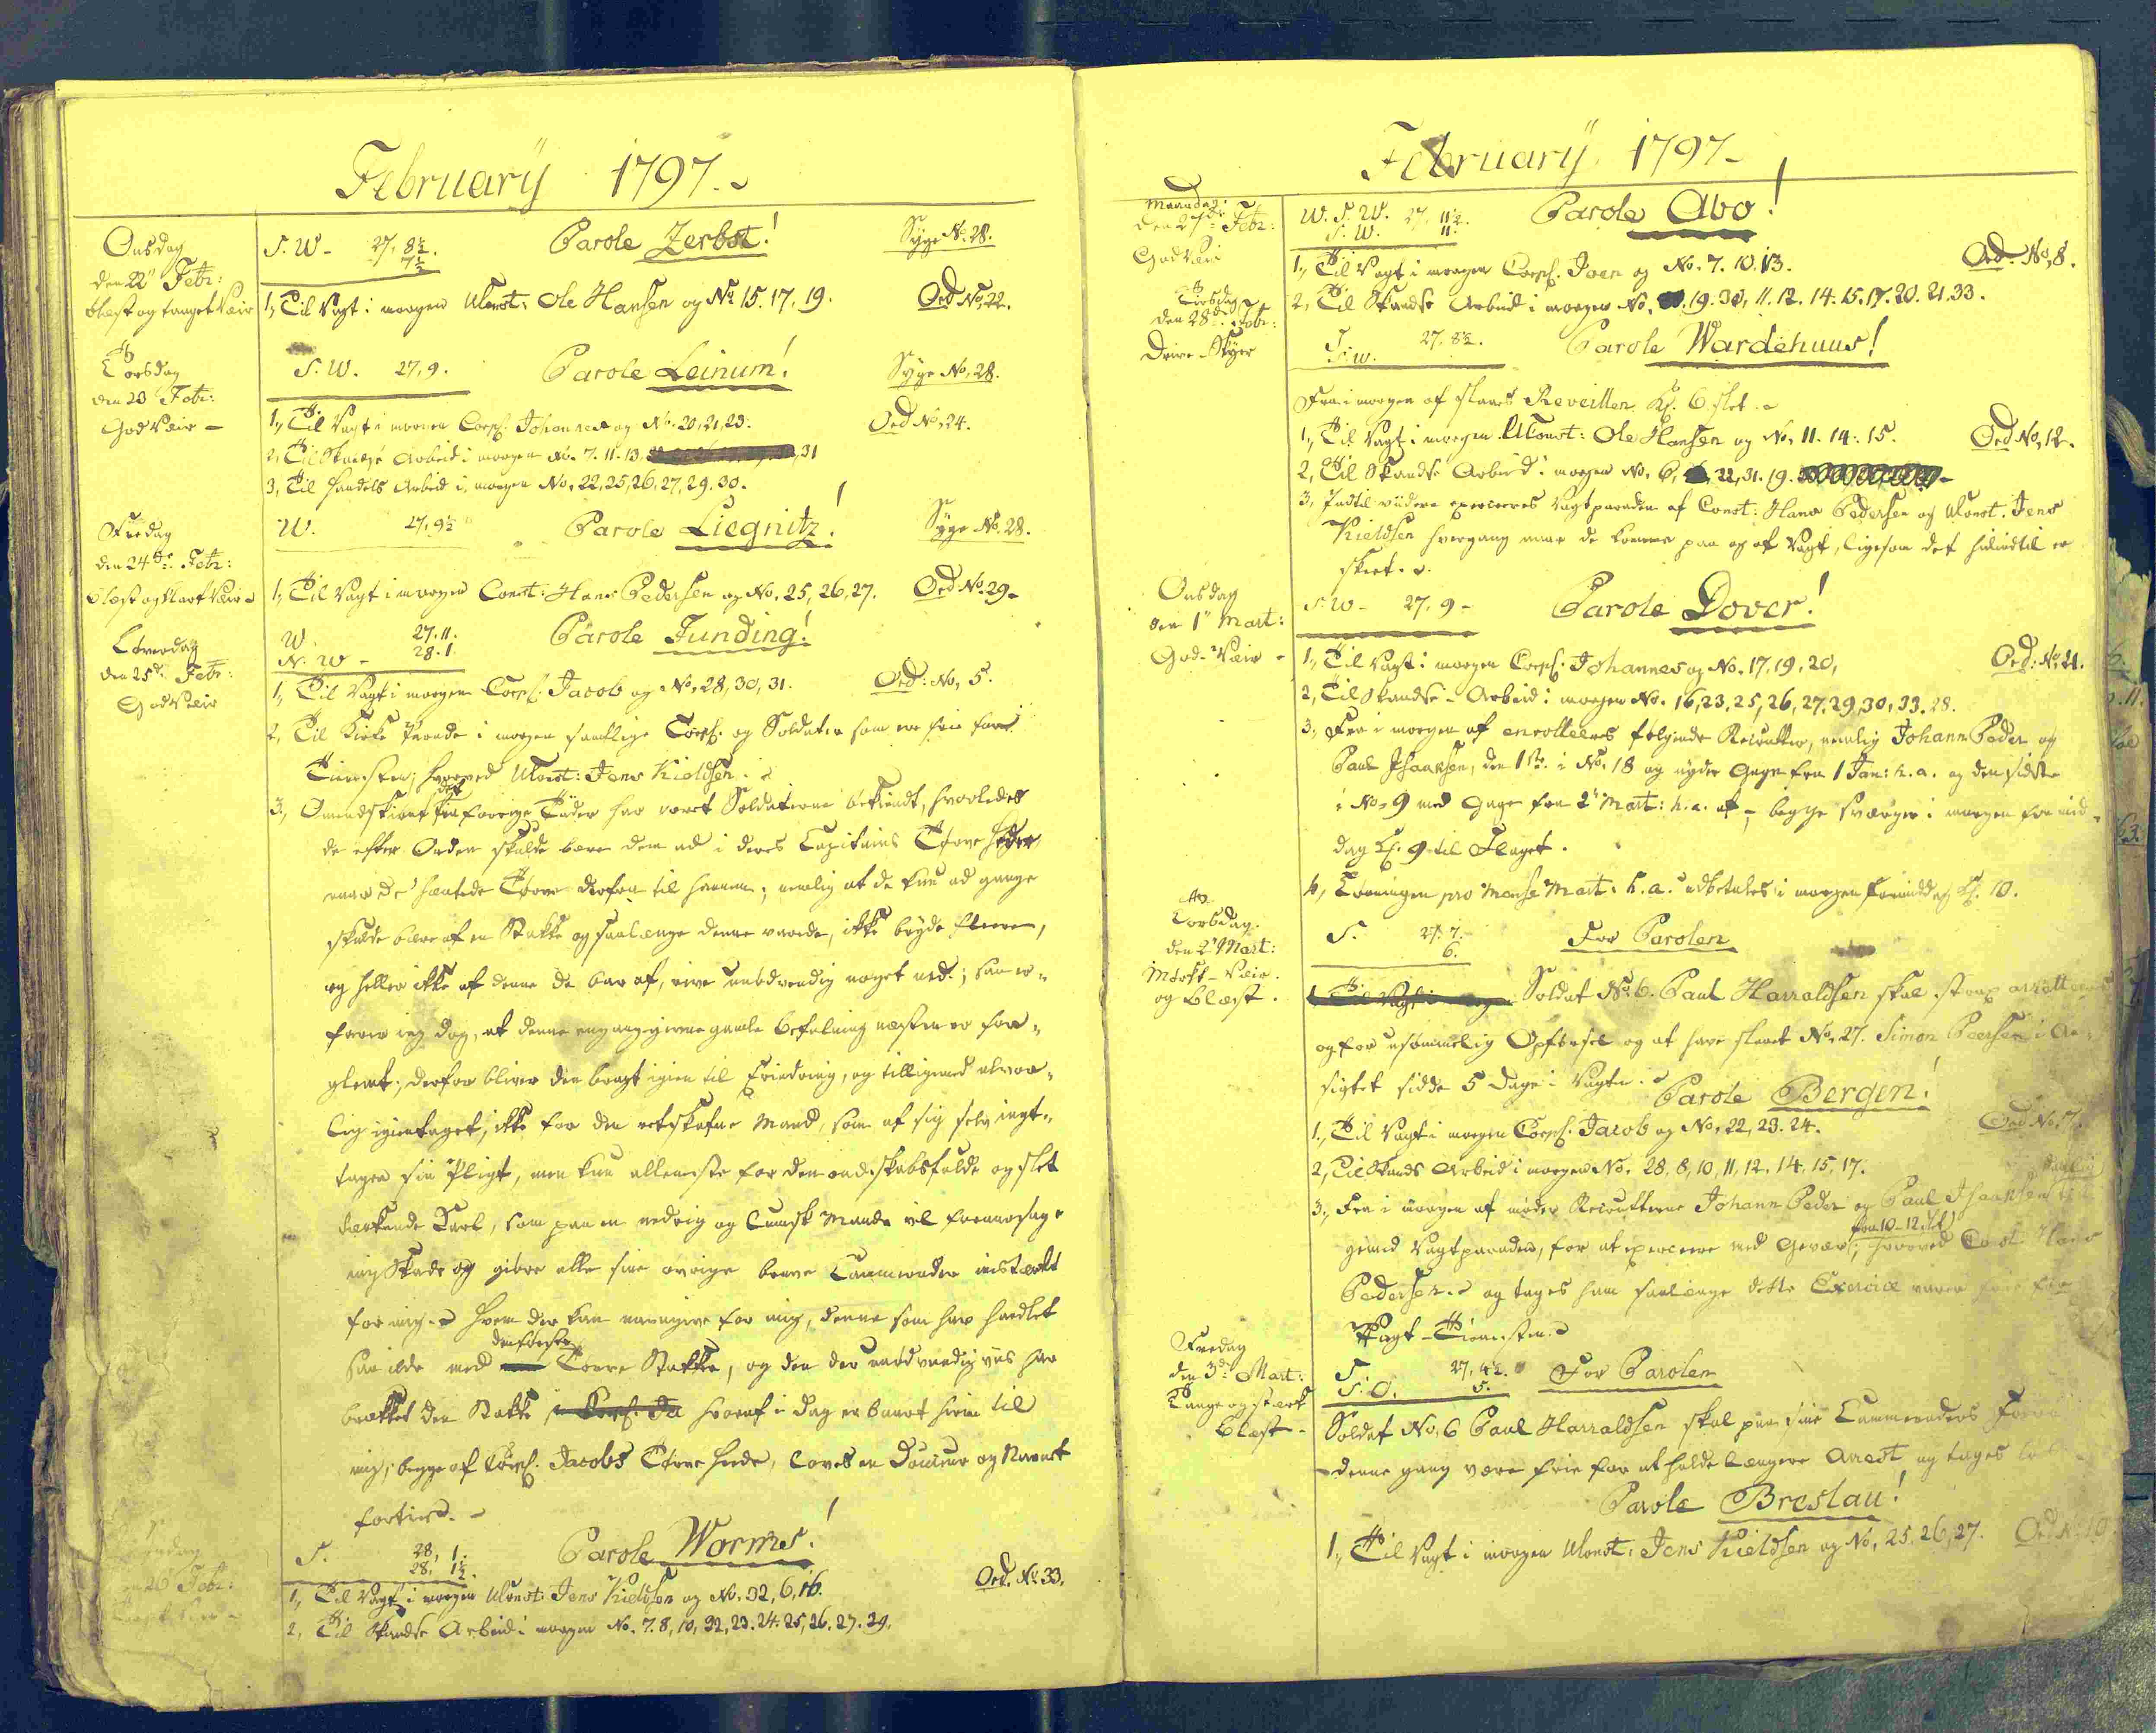 February 1797.
Onsdag
den 22 Febr:
blæst og tunget Veir
S. W - 27. 8½. Parole Zerbst! Syge No. 28.
7½
1, Til Vagt i morgen UConst: Ole Hansen og No 15. 17. 19. Ord No, 22.
Torsdag
den 23 Febr:
God Veir -
S. W. 27, 9. Parole Leinum! Syge No, 28.
1, Til Vagt i morgen Corpl. Johannes og No. 20, 21, 23. Ord No, 24.
2, Til Skandse Arbeid i morgen No. 7. 11. 13, 31
3, Til Handels Arbeid i morgen No, 22, 25, 26, 27, 29. 30.
Fredag
den 24de Febr:
blæst og klart Veir
W. 27, 9½ Parole Liegnitz! Syge No. 28.
1, Til Vagt i morgen Const: Hans Pedersen og No. 25, 26, 27. Ord No. 29-
Løverdag
den 25de Febr:
God Veir
W. 27. 11. Parole Funding!
N. W - 28. 1.
1, Til Vagt i morgen Corpl. Jacob og No, 28, 30, 31. Ord: No, 5.
2, Til Kirke Parade i morgen samtlige Corpl. og Soldater som ere frie for
Tienesten; hvorved UConst: Jens Kieldsen.
3, Omendskiønt det fra forrige Tider har været Soldaterne bekiendt, hvorledes
de efter Orden skulde bære dem ad i deres Capitains Tørve Heder
naar de hentede Tørve derfra til hannem; nemlig at de kun ad gange
skulde bære af en Stakke og saalænge denne varede, ikke bryde fleere,
og heller ikke af denne de bar af, rive unødvendig noget ned; saa er-
farer jeg dog, at denne engang givne gamle befalning næsten er for-
glemt; derfor bliver den bragt igien til Erindring, og tilligemed alvor-
lig igientaget, ikke for den retskafne Mand, som af sig selv iagt-
tager sin Pligt, men kun alleneste for den ondskabsfulde og slet
tænkende Karl, som paa en nedrig og lumsk Maade vil foraarsage
mig Skade og giøre alle sine øvrige brave Cammerader mistænkt
for mig. Hvem der kan navngive for mig, denne som har handlet
saa ilde med den første Tørve Stakke, og den der unødvendig viis har
brækket den Stakke i Corpl. Ja hvoraf i Dag er baaret hiem til
mig; begge af Corpl. Jacobs Tørve Hede, loves en Douceur og Navnet
fortied. -
26 Febr:
S. 28, 1. Parole Worms!
28, 1½.
1, Til Vagt i morgen UConst: Jens Kieldsen og No. 32, 6, 16. Ord. No 33.
2, Til Skandse Arbeid i morgen No. 7. 8, 10, 22, 23. 24. 25, 26. 27. 29.
February 1797-
Mandag
den 27de Febr:
God Veir
W. S. W. 27. 11½. Parole Abo!
S. W. 11.
1, Til Vagt i morgen Corpl. Joen og No. 7. 10. 13. Ord. No, 8.
2, Til Skandse Arbeid i morgen No. 19. 30, 11. 12. 14. 15. 17. 20. 21. 33.
Tirsdag
den 28de Febr:
Drive Skyer
S. 27. 8½. Parole Wardehuus!
S. W.
Fra i morgen af slaaes Reveillen Kl. 6 slet.
1, Til Vagt i morgen UConst: Ole Hansen og No, 11. 14. 15. Ord No, 12.
2, Til Skandse Arbeid i morgen No. 6, 22, 31. 19.
3, Indtil viidere exerceeres Vagtparaden af Const: Hans Pedersen og UConst. Jens
Kieldsen hvergang naar de komme paa og af Vagt, ligesom det hidindtil er
skeet.
Onsdag
den 1 Mart:
God- Veir -
S. W- 27. 9- Parole Dover!
1, Til Vagt i morgen Corpl. Johannes og No. 17, 19, 20, Ord: No, 21.
2, Til Skandse - Arbeid i morgen No. 16, 23, 25, 26, 27, 29, 30, 33. 28.
3, Fra i morgen af enrolleeres følgende Recrutter, nemlig Johann Peder og
Paul Isaaksen, den 1ste i No, 18 og nyder Gage fra 1 Jan: h. a. og den sidste
i No, 9 med Gage fra 2 Mart: h. a. af - begge sværger i morgen formid-
dag Kl. 9 til Flaget.
4, Lønningen pro Mense Mart: h. a. udbetales i morgen formiddag Kl. 10.
Torsdag.
den 2 Mart:
Mørkt - Veir.
og blæst.
S. 27. 7. For Parolen
6.
Soldat No. 6. Paul Harraldsen skal strax arrett
og for usømmelig Opførsel og at have slaaet No, 27. Simon Peersen i An-
sigtet sidde 5 Dage i Vagten. Parole Bergen!
1, Til Vagt i morgen Corpl. Jacob og No, 22, 23. 24. Ord No, 7.
2, Til Skands Arbeid i morgen No. 28, 8, 10, 11, 12, 14, 15, 17.
daglig
3, Fra i morgen af møder Recrutterne Johann Peder og Paul Isaaksen til
fra 10-12 slet
gemed Vagtparaden, for at exercere med Gevær; hvorved Const. Hans
Pedersen. og tages ham saalænge dette Exercice varer frie for
Vagt-Tienesten.
Fredag
den 3de Mart:
Tunge og stærk
blæst -
S. 27, 4½. For Parolen
S. O. 5.
Soldat No, 6 Paul Harraldsen skal paa sine Cammeraders For
denne gang være frie for at holde længere Arrest og tages
Parole Breslau!
1, Til Vagt i morgen UConst: Jens Kieldsen og No, 25, 26, 27. Ord No 10